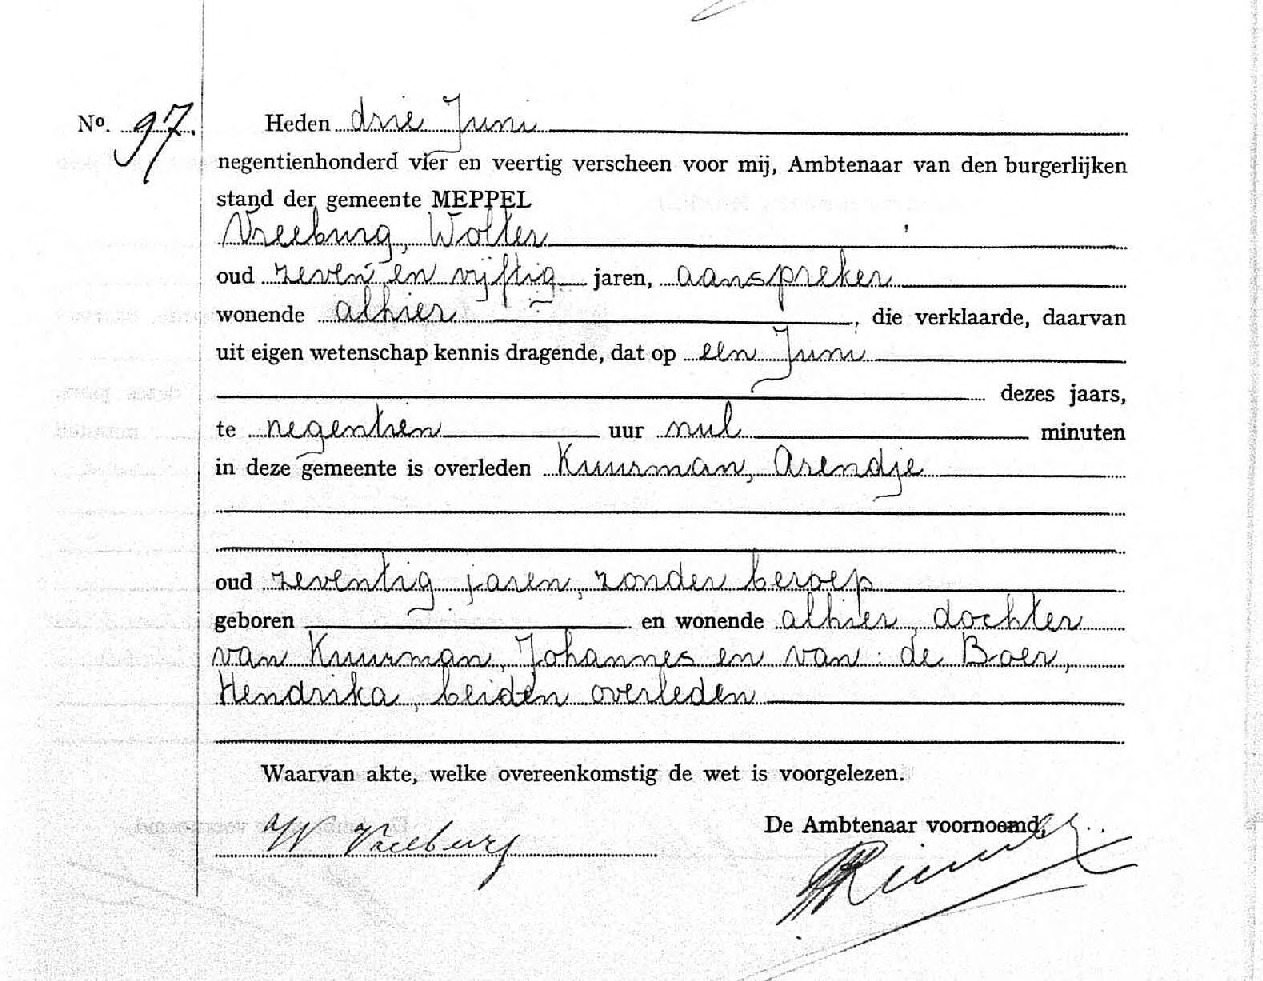 No. 97.
Heden drie Juni
negentienhonderd vier en veertig verscheen voor mij, Ambtenaar van den burgerlijken
stand der gemeente MEPPEL
Vreeburg, Wolter
oud zeven en vijftig jaren, aanspreker
wonende alhier, die verklaarde, daarvan
uit eigen wetenschap kennis dragende, dat op een Juni
dezes jaars,
te negentien uur nul minuten
in deze gemeente is overleden Kuurman, Arendje
oud zeventig jaren, zonder beroep
geboren en wonende alhier, dochter
van Kuurman, Johannes en van de Boer,
Hendrika, beiden overleden
Waarvan akte, welke overeenkomstig de wet is voorgelezen.
De Ambtenaar voornoemd,
W Vreeburg